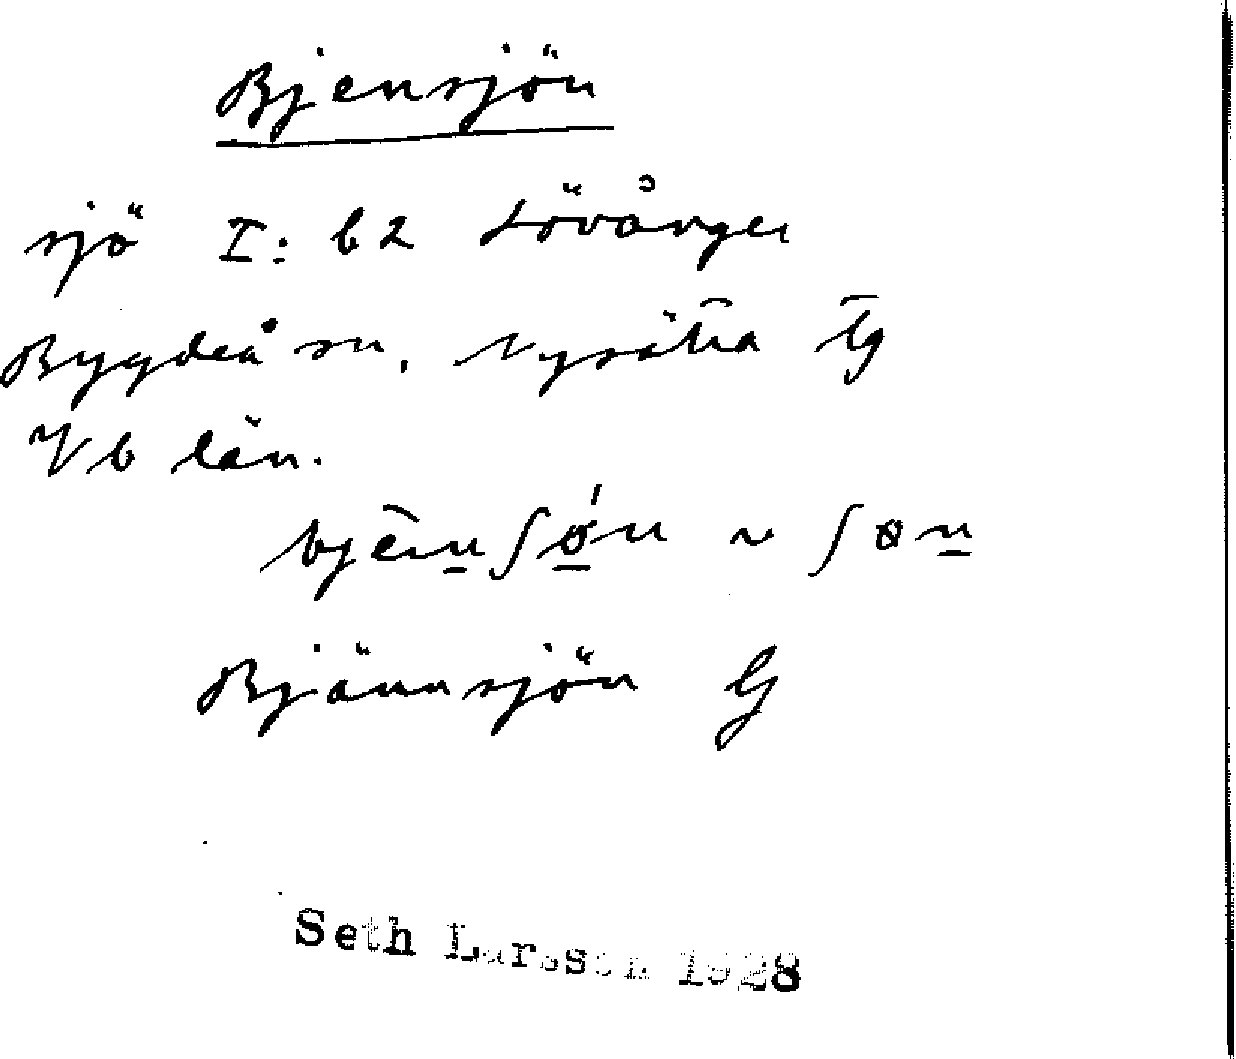 Bjensjön
sjö I: b2 Lövånger
Bygdeå sn, Nysätra tg
Vb län.
Bjännsjön G
Seth Larsson 1928